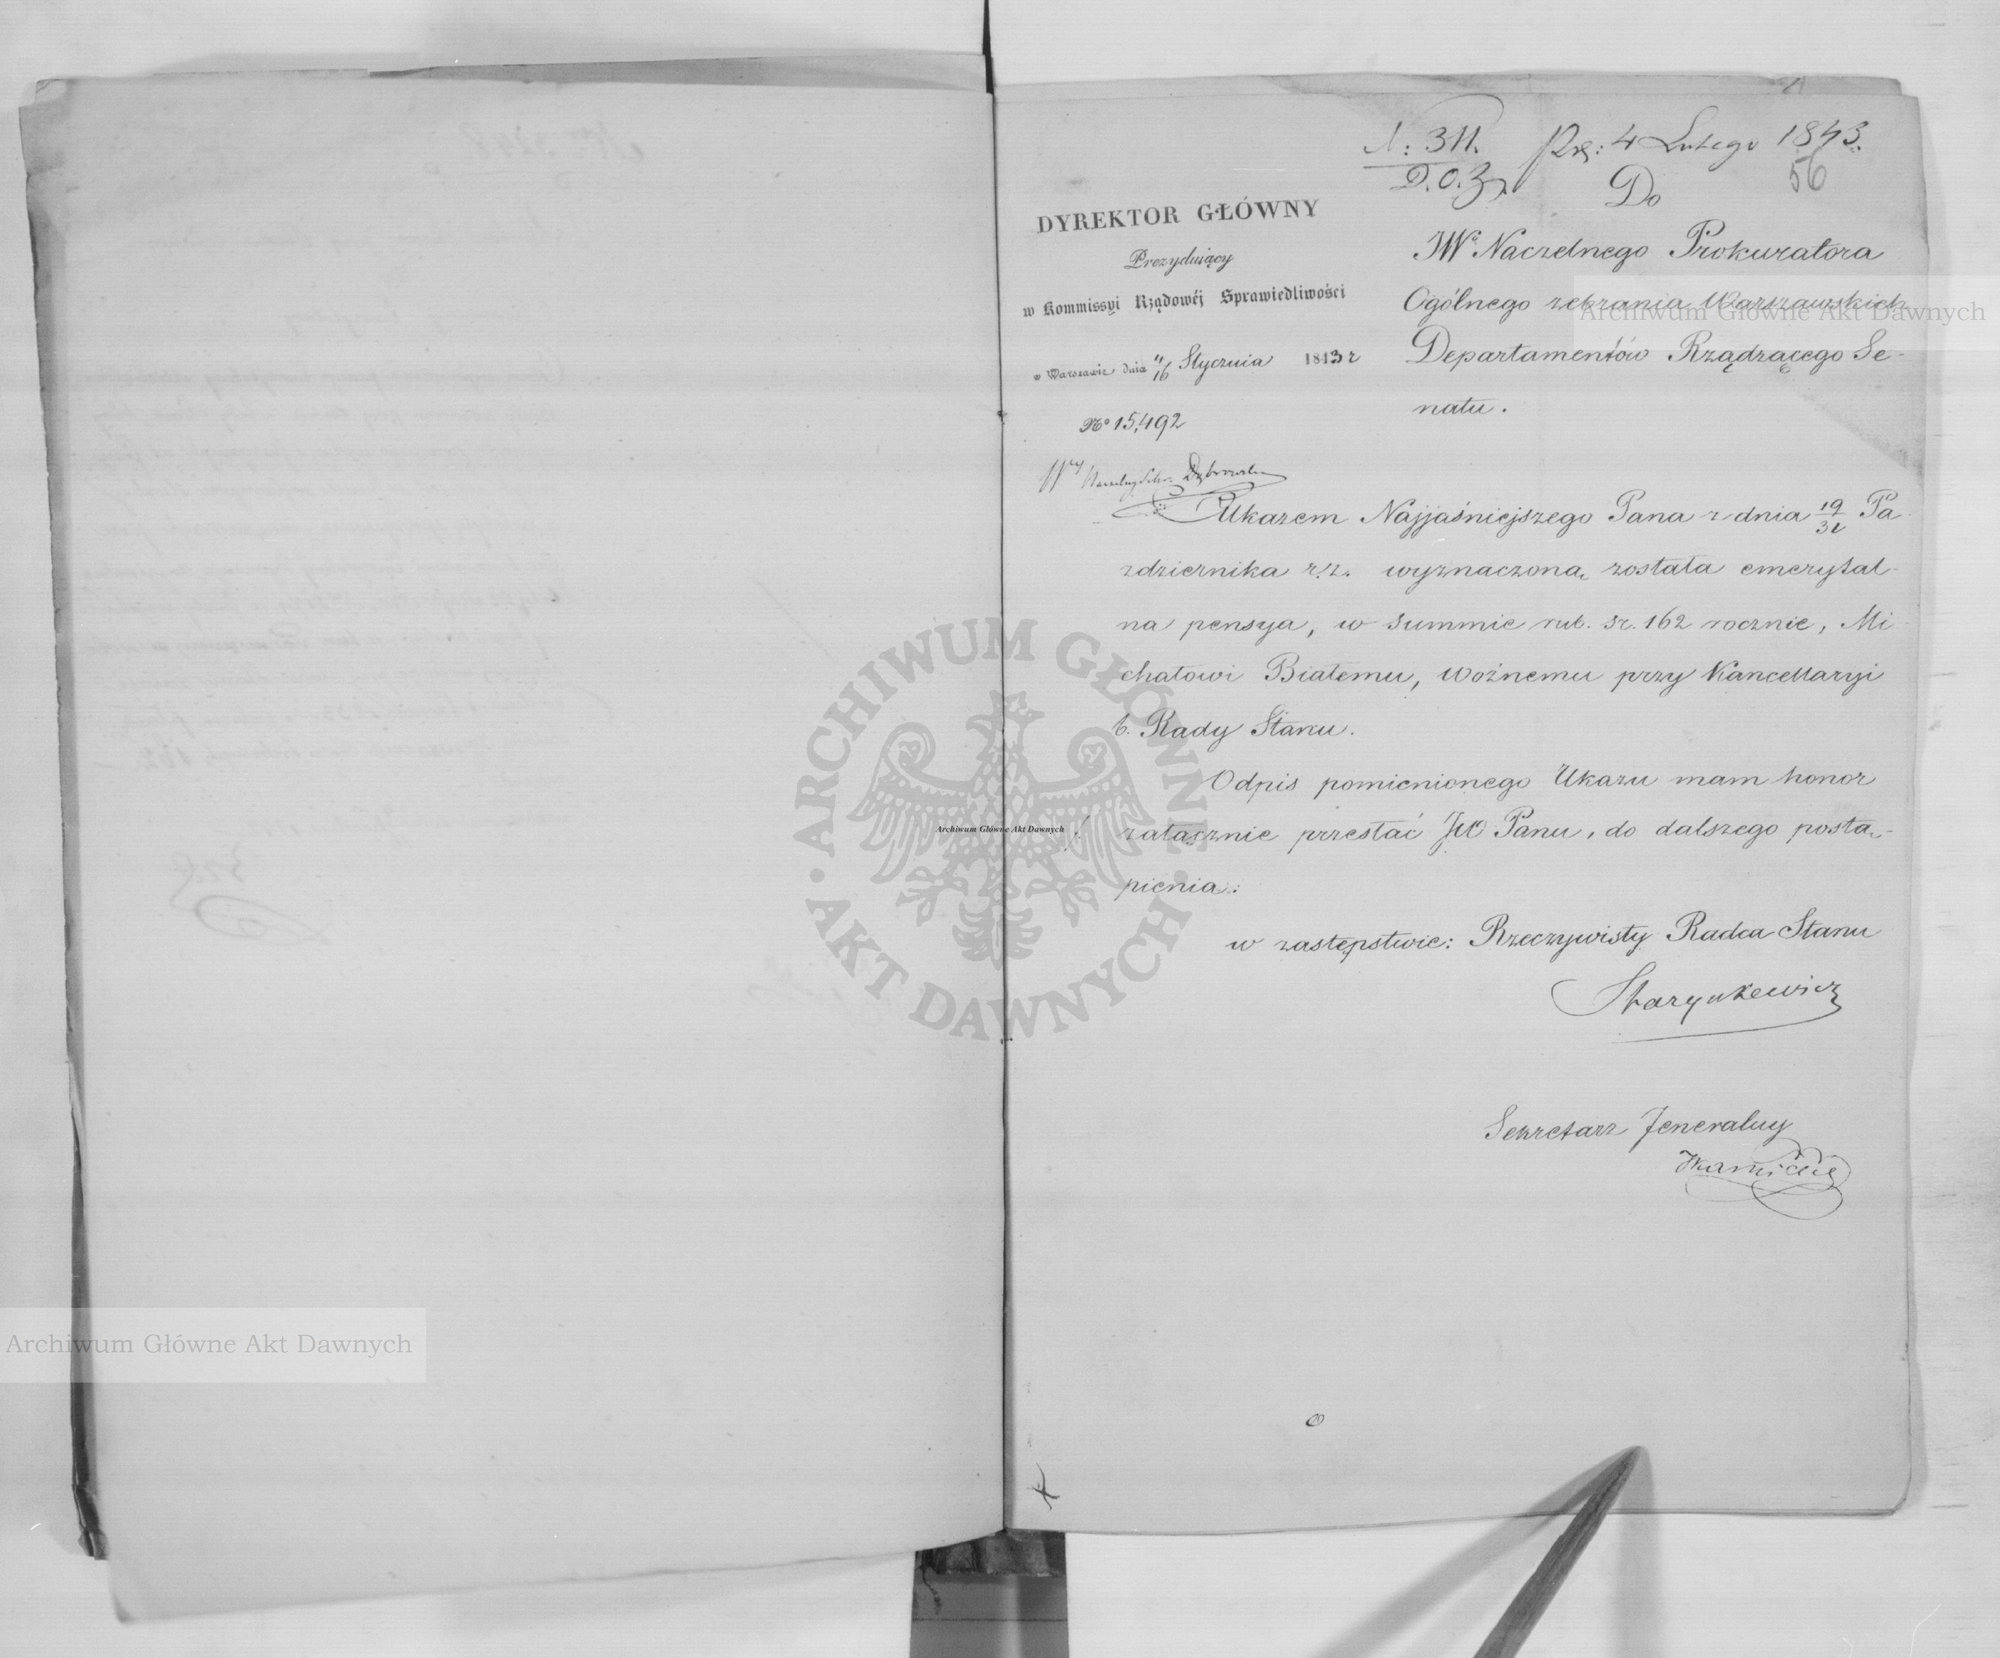 N: 311. Prz: 4 Lutego 1843.
D.O.Z. 56
DYREKTOR GŁÓWNY
Prezydujący
w Kommissyi Rządowéj Sprawiedliwości
w Warszawie dnia 4/16 Stycznia 1843 r
No 15,492
Wny Naczelny Sekr. Dąbrowski
Do
JWo Naczelnego Prokuratora
Ogólnego zebrania Warszawskich
Departamentów Rządzącego Se-
natu.
Ukazem Najjaśniejszego Pana z dnia 19/31 Pa
zdziernika r. z. wyznaczoną została emerytal-
na pensya, w summie rub. sr. 162 rocznie, Mi-
chałowi Białemu, Woźnemu przy Kancellaryi
b. Rady Stanu.
Odpis pomienionego Ukazu mam honor
załącznie przesłać JW Panu, do dalszego postą-
pienia.
w zastępstwie: Rzeczywisty Radca Stanu
Starynkewicz
Sekretarz Jeneralny
Archiwum Główne Akt Dawnych
ARCHIWUM GŁÓWNE AKT DAWNYCH
Archiwum Główne Akt Dawnych
Archiwum Główne Akt Dawnych